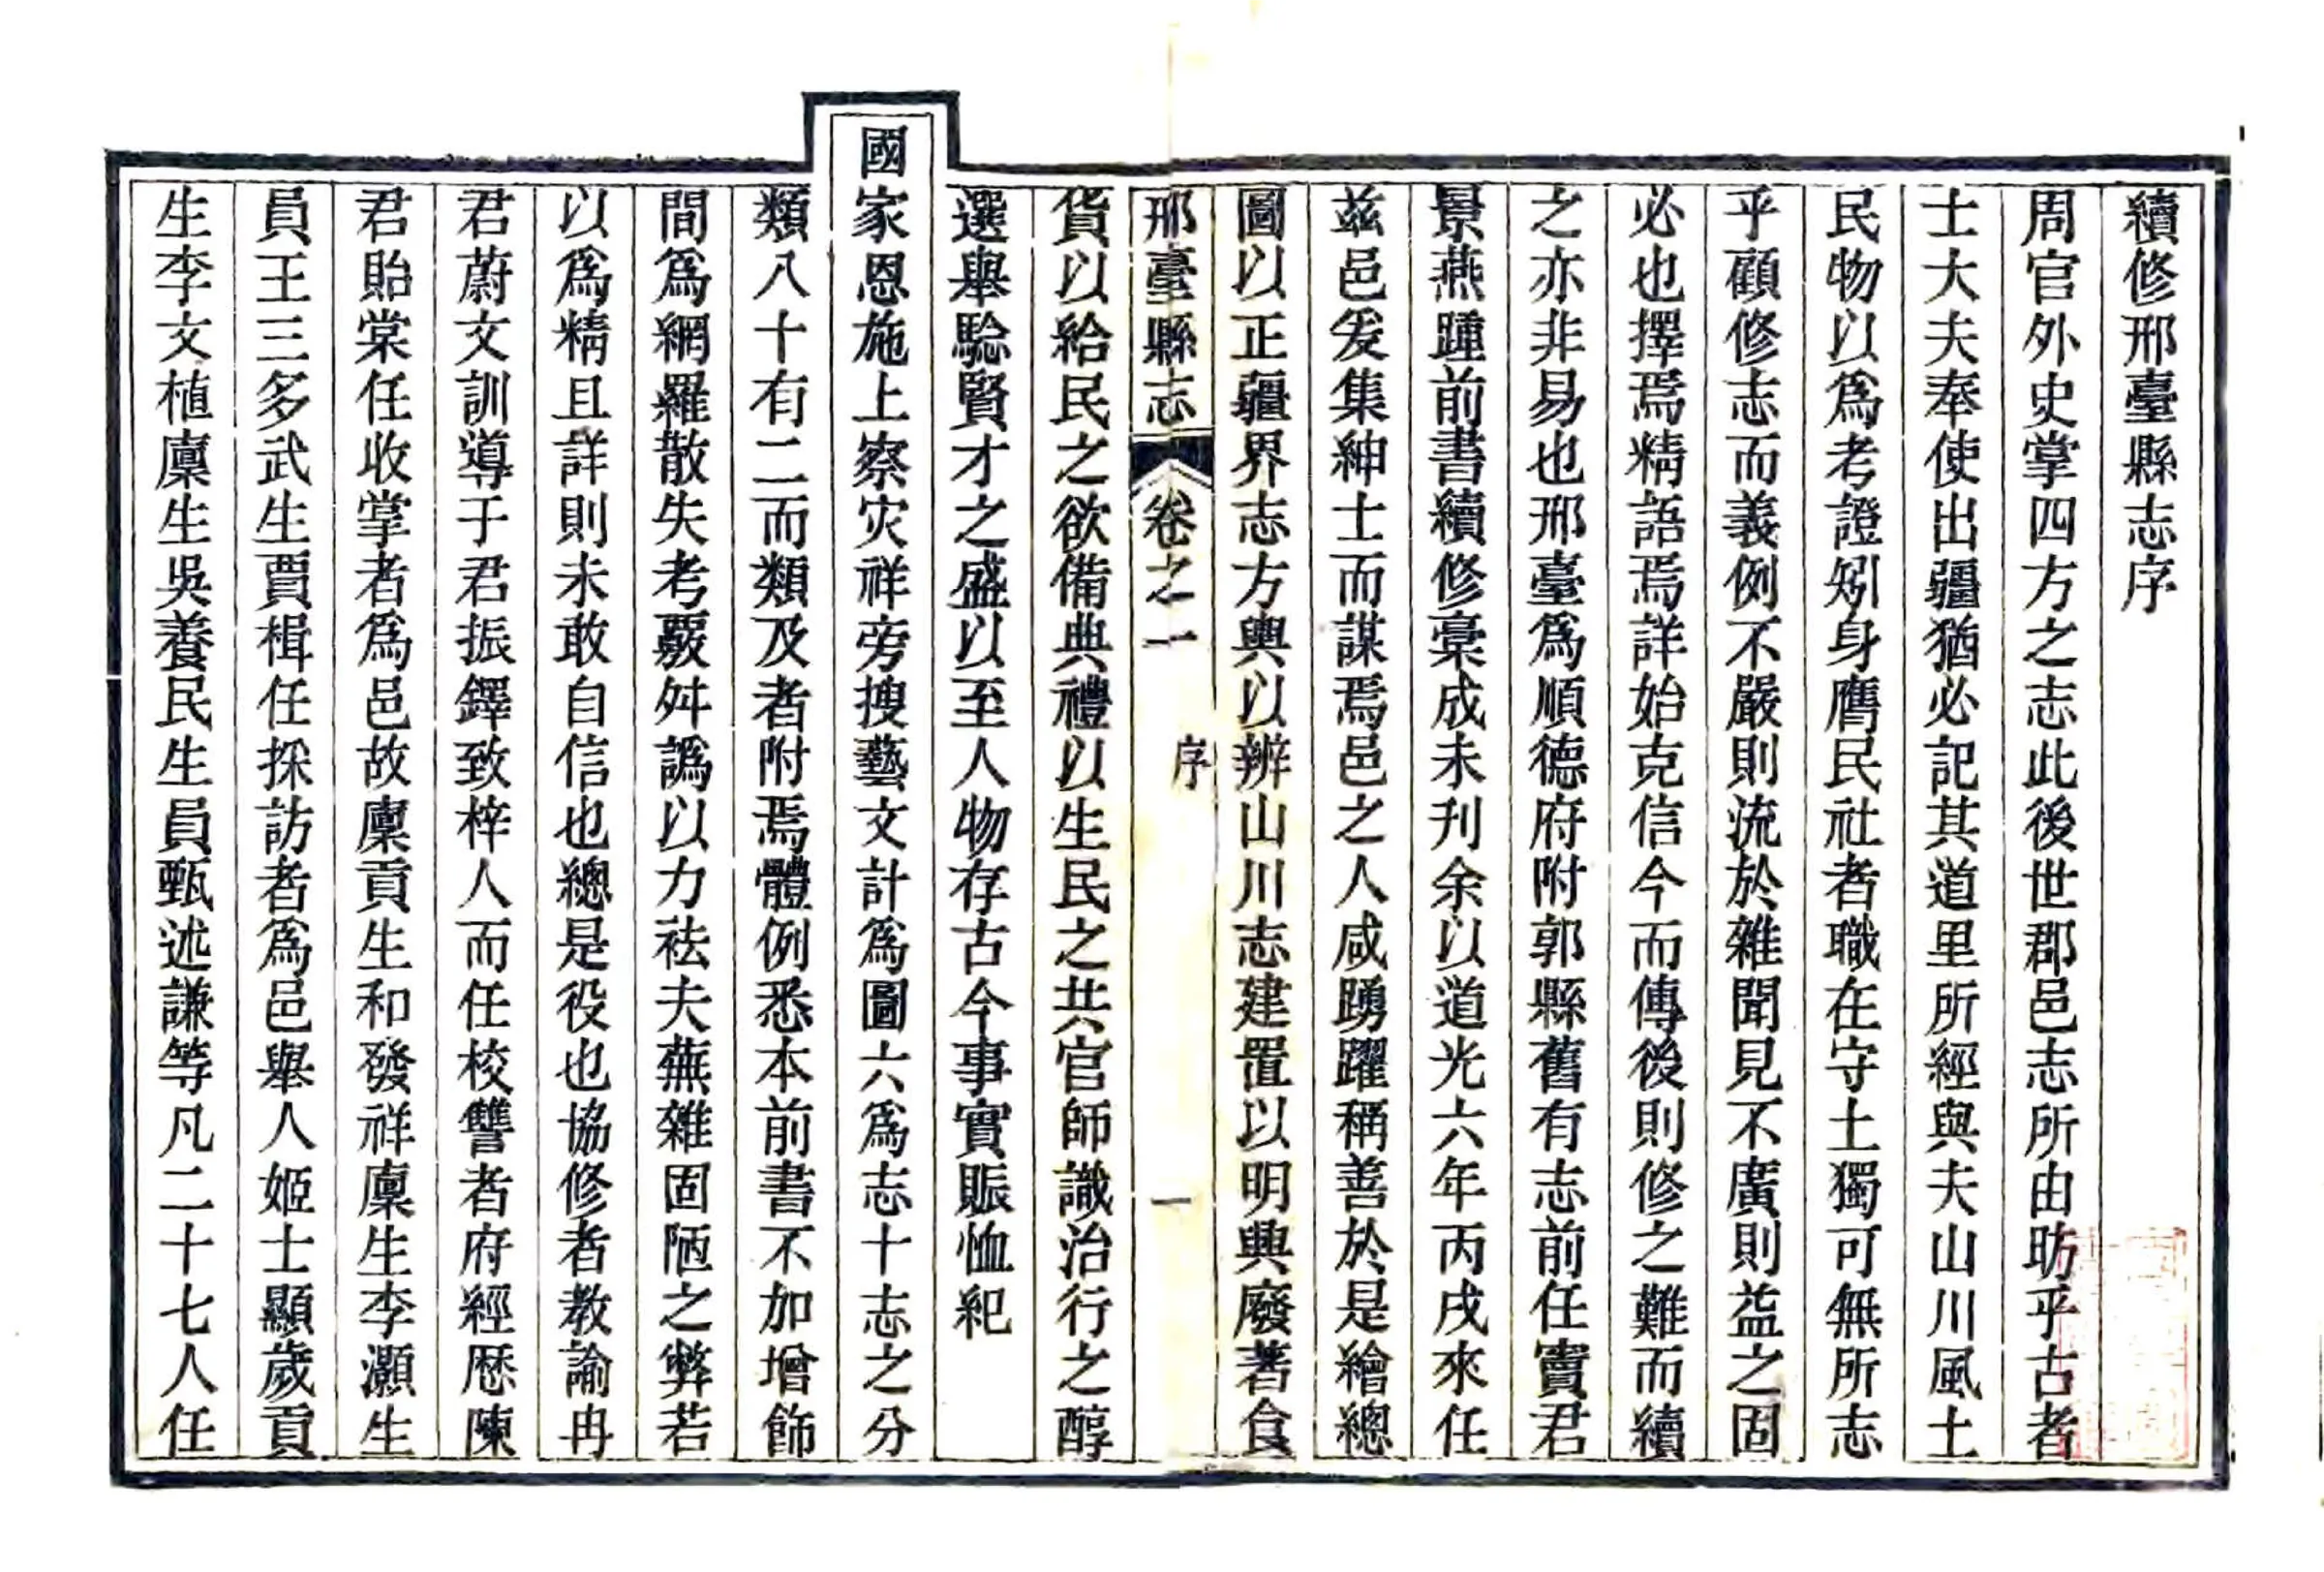 續修邢臺縣志序
周官外史掌四方之志此後世郡邑志所由昉乎古者
士大夫奉使出疆猶必記其道里所經與夫山川風土
民物以爲考證矧身膺民社者職在守土獨可無所志
乎顧修志而義例不嚴則流於雜聞見不廣則益之固
必也擇焉精語焉詳始克信今而傳後則修之難而續
之亦非易也邢臺爲順德府附郭縣舊有志前任寶君
景燕踵前書續修稾成未刊余以道光六年丙戌來任
兹邑爰集紳士而謀焉邑之人咸踴躍稱善於是繪總
圖以正疆界志方輿以辨山川志建置以明興廢著食
邢臺縣志 卷之一 序 一
貨以給民之欲備典禮以生民之共官師識治行之醇
選舉騐賢才之盛以至人物存古今事實賑恤紀
國家恩施上察灾祥旁搜藝文計爲圖六爲志十志之分
類八十有二而類及者附焉體例悉本前書不加增飾
間爲網羅散失考覈舛譌以力袪夫蕪雜固陋之弊若
以爲精且詳則未敢自信也總是役也協修者教諭冉
君蔚文訓導于君振鐸致梓人而任校讐者府經歷陳
君貽棠任收掌者爲邑故廩貢生和發祥廩生李灝生
員王三多武生賈楫任採訪者爲邑舉人姬士顯歲貢
生李文植廩生吳養民生員甄述謙等凡二十七人任